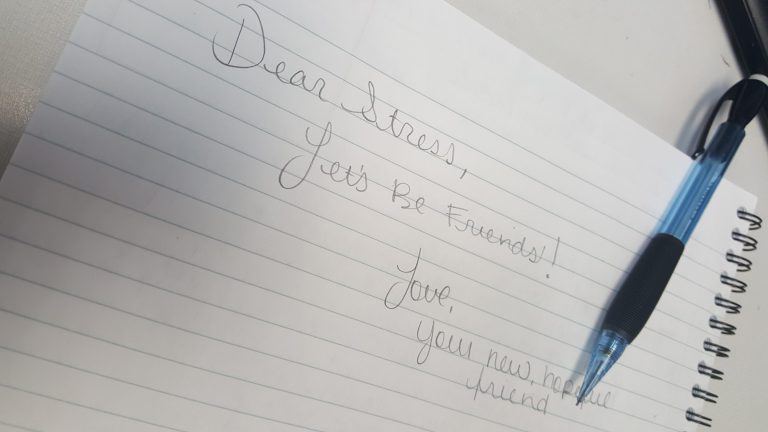 Dear Stress,
Let's Be Friends!
Love,
your new,
friend